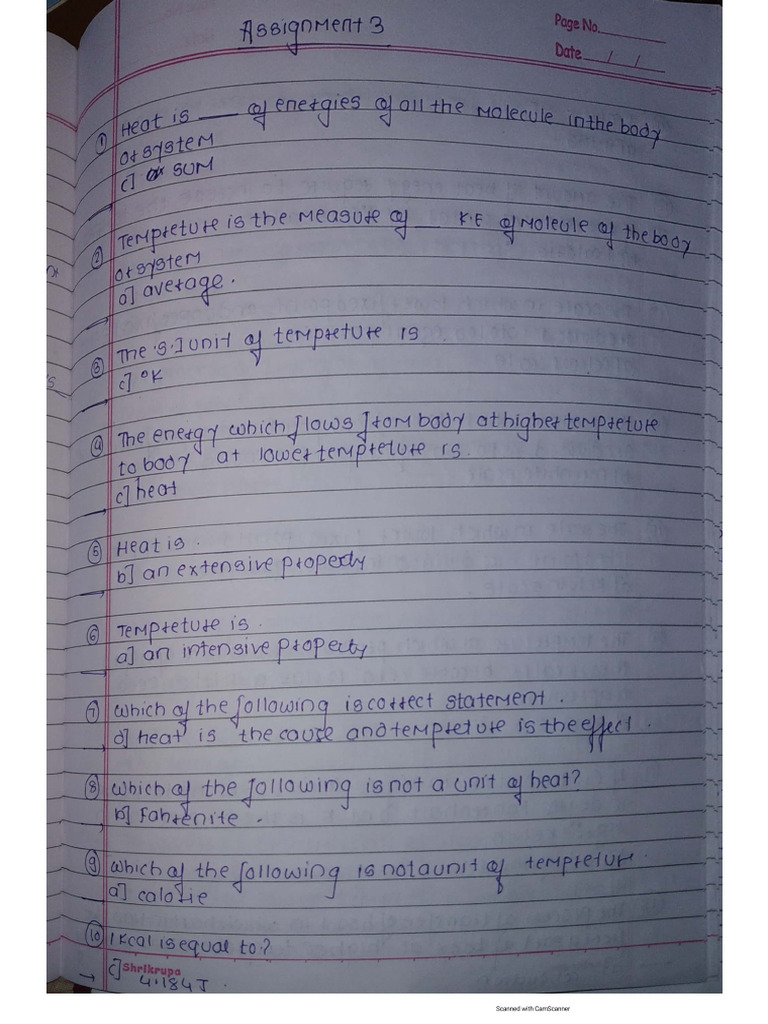 Assignment 3
Page No.
Date / /
① Heat is ___ of energies of all the Molecule in the body
or system
c] sum
② Tempreture is the measure of __ K.E of Molecule of the body
or system
a] average.
③ The S.I unit of tempreture is .
c] °K
④ The energy which flows from body at higher tempreture
to body at lower tempreture is.
c] heat
⑤ Heat is .
b] an extensive property
⑥ Tempreture is .
a] an intensive property
⑦ which of the following is correct statement .
d] heat is the cause and tempreture is the effect .
⑧ which of the following is not a unit of heat?
b] Fahrenite .
⑨ which of the following is not a unit of tempreture .
a] calorie
⑩ 1 Kcal is equal to ?
Shrikrupa
c] 4.184 J .
Scanned with CamScanner